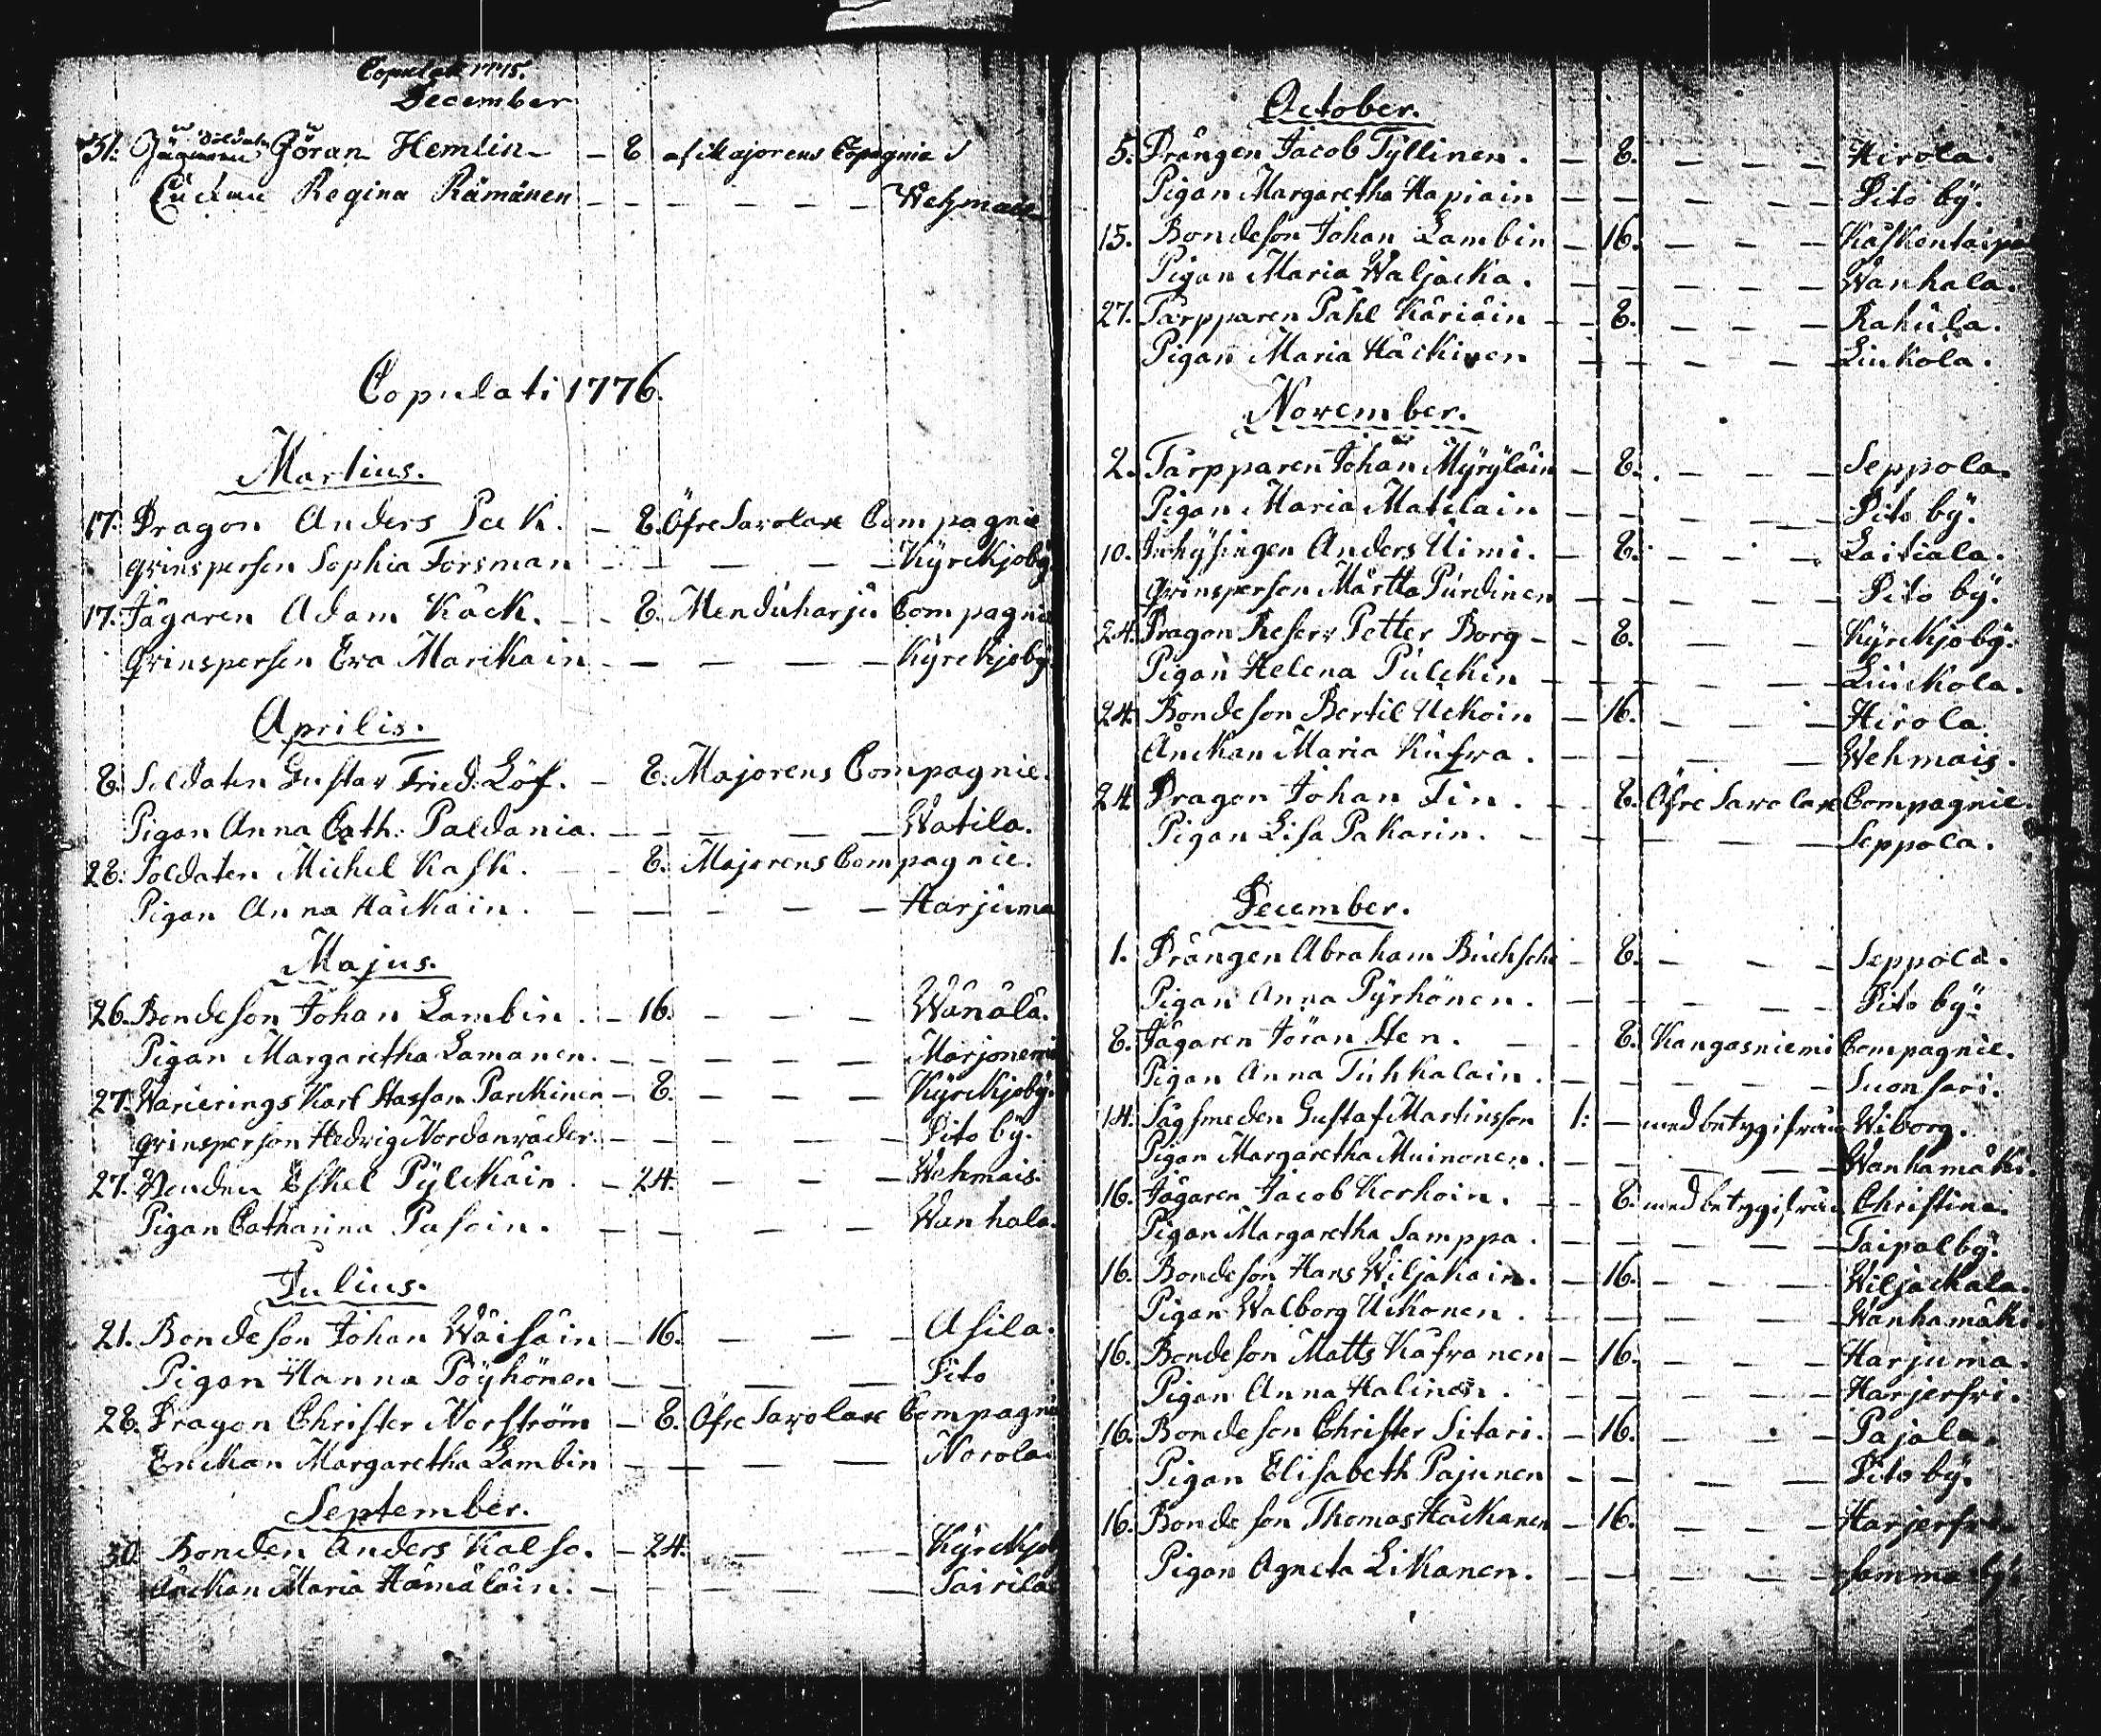 Copulati 1775.
December
31. Soldaten Göran Hemlin - 8 af Majorens Compagnie
Enckan Regina Rämänen - - - - - Wehmais
Copulati 1776.
Martius.
17. Dragon Anders Pek. - 8. Öfre Savolax Compagnie
qvinspersen Sophia Forsman - - - - - Kÿrckjobÿ
17. Jägaren Adam Käck. - - 8. Menduharju Compagnie
qvinspersen Eva Marikain - - - - - Kÿrckjobÿ
Aprilis.
8. Soldaten Gustav Fried: Löf. - 8. Majorens Compagnie.
Pigan Anna Cath: Paldania. - - - - - Watila.
28. Soldaten Michel Kask. - - 8. Majorens Compagnie.
Pigan Anna Häckain. - - - - - Harjuma
Majus.
26. Bondeson Johan Lambin. - 16. - - - Wänälä.
Pigan Margaretha Lamanen. - - - - - Marjonemi
27. Warierings Karl Staffan Parckinen - 8. - - - Kÿrckjobÿ.
qvinsperson Hedvig Nordanväder. - - - - - Dito bÿ.
27. Bonden Eskel Pÿlckäin. - 24. - - - Wehmais.
Pigan Catharina Pasoin. - - - - - Wanhala.
Julius.
21. Bondeson Johan Wäisäin - 16. - - - Asila.
Pigan Hanna Pöÿhönen - - - - - Dito
28. Dragon Christer Norström - 8. Öfre Savolax Compagnie
Enckan Margaretha Lambin - - - - - Norola.
September.
30. Bonden Anders Kalso. - 24. - - - Kÿrckjob
Änckan Maria Hämäläin. - - - - - Sairila
October.
5. Drängen Jacob Tÿllinen. - 8. - - - Hirola.
Pigan Margaretha Hapiain - - - - - Dito bÿ.
15. Bondeson Johan Lambin - 16. - - - Käskentaipa
Pigan Maria Waljacka. - - - - - Wanhala.
27. Tarpparen Påhl Käriäin - - 8. - - - Rahula.
Pigan Maria Häckinen - - - - - Liukola.
November.
2. Tarpparen Johan Mÿrÿläin - 8. - - - Seppola.
Pigan Maria Matilain - - - - - Dito bÿ.
10. Inhÿsingen Anders Uimi. - 8. - - - Laitiala.
qvinsperson Märtta Purdinen - - - - - Dito bÿ.
24. Dragon Reserv Petter Borg - - 8. - - - Kÿrckjobÿ.
Pigan Helena Pulckin - - - - - Liuckola.
24. Bondeson Bertil Uckoin - 16. - - - Hirola.
Änckan Maria Kufra. - - - - - Wehmais.
24. Dragon Johan Fin. - - 8. Öfre Savolax Compagnie.
Pigan Lisa Pakarin. - - - - - Seppola.
December.
1. Drängen Abraham Buchscht - 8. - - - Seppola.
Pigan Anna Pÿrhönen. - - - - - Dito bÿ.
8. Jägaren Jöran Sten. - - 8. Kangasniemi Compagnie.
Pigan Anna Tuhkalain. - - - - - Suonsari.
14. Sågsmeden Gustaf Martinsson 1: - med betyg ifrån Wiborg.
Pigan Margaretha Muinonen. - - - - - Wanhamäki.
16. Jägaren Jacob Korhoin. - - 8. med betyg ifrån Christina.
Pigan Margaretha Samppa. - - - - - Taipalbÿ.
16. Bondeson Hans Wiljakain. - 16. - - - Wiljackala.
Pigan Walborg Uckonen. - - - - - Wanhamäki.
16. Bondeson Matts Kafranen - 16. - - - Harjuma.
Pigan Anna Halinen. - - - - - Harjersri.
16. Bondeson Christer Sitari. - 16. - - - Pajala.
Pigan Elisabeth Pajunen - - - - - Dito bÿ.
16. Bondeson Thomas Häckanen - 16. - - - Harjersri
Pigan Agneta Likanen. - - - - - samma bÿ.